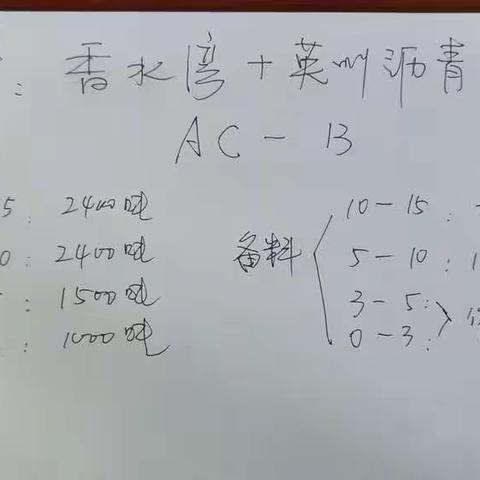 : 香水湾+英州沥青
AC-13
5: 2400吨
0: 2400吨
: 1500吨
: 1000吨
备料
10-15:
5-10: 1
3-5:
0-3: